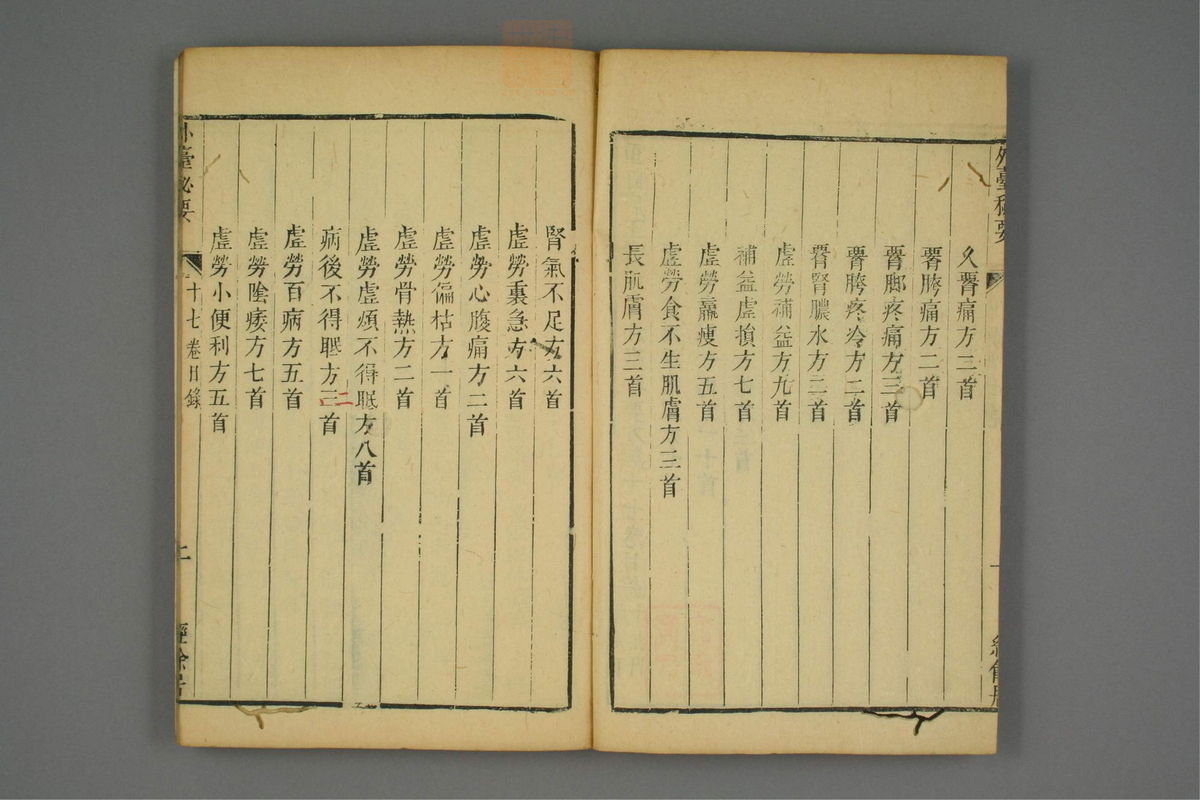 外臺秘要
久腰痛方二首
腰胯痛方二首
腰腳疼痛方三首
腰胯疼冷方二首
腰腎膿水方二首
虛勞補益方九首
補益虛損方七首
虛勞羸瘦方五首
虛勞食不生肌膚方三首
長肌膚方三首
腎氣不足方六首
虛勞裏急方六首
虛勞心腹痛方二首
虛勞偏枯方一首
虛勞骨熱方二首
虛勞虛煩不得眠方八首
病後不得眠方三首
二
虛勞百病方五首
虛勞陰痿方七首
虛勞小便利方五首
外臺秘要 十七卷目錄 經餘居